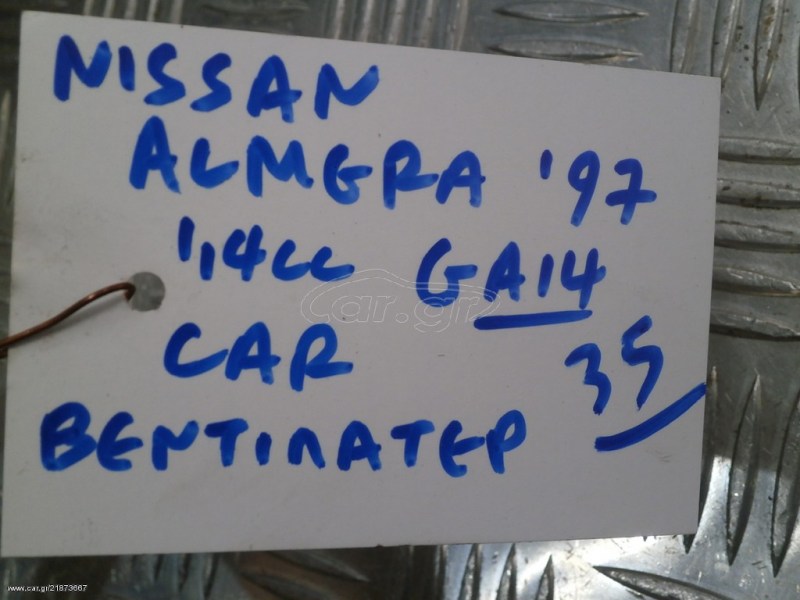 NISSAN
ALMERA '97
'1,4cc GA14
CAR
35
ΒΕΝΤΙΛΑΤΕΡ
car.gr
www.car.gr/21873667